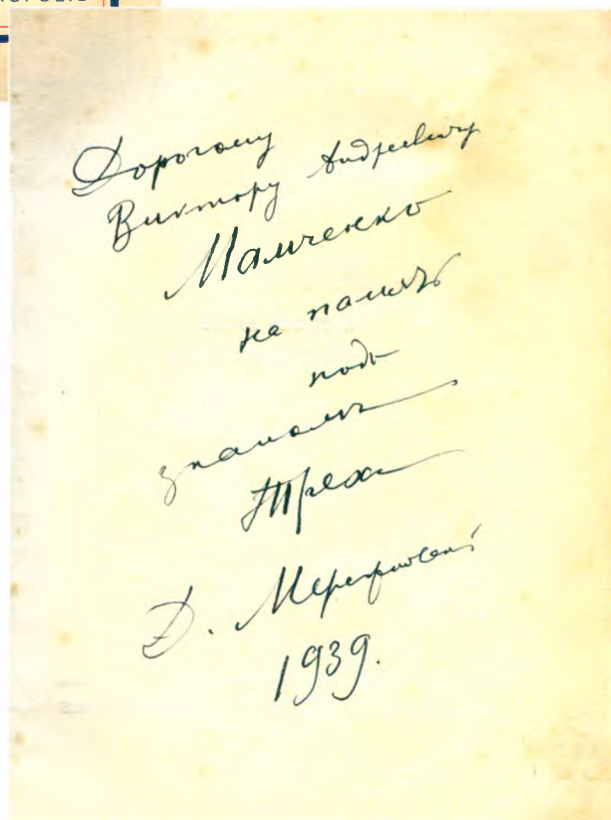 Дорогому
Виктору Андреевичу
Мамченко
на память
подъ
знакомъ
Трехъ
Д. Мережковскій
1939.